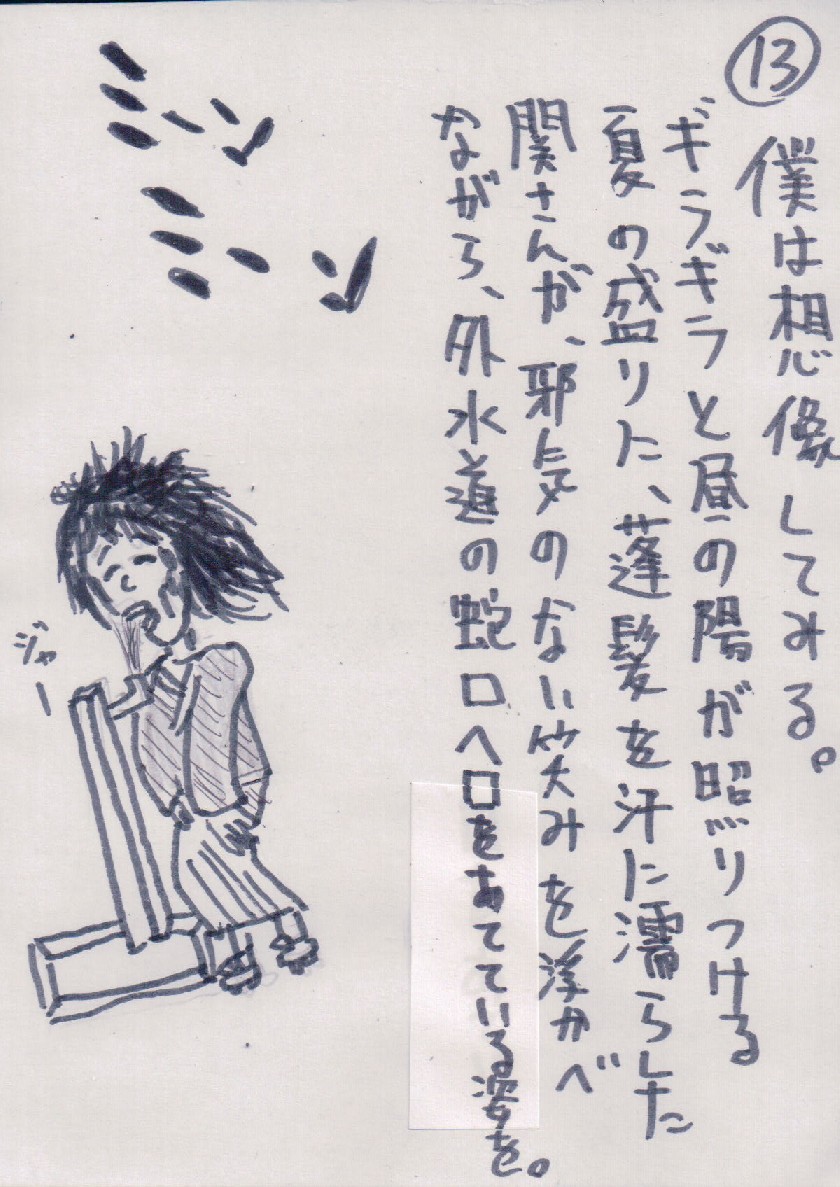 ⑬
僕は想像してみる。
ギラギラと昼の陽が照りつける
夏の盛りに、蓬髪を汗に濡らした
関さんが、邪気のない笑みを浮かべ
ながら、外水道の蛇口へ口をあてている姿を。
ミーン
ミーン
ジャー